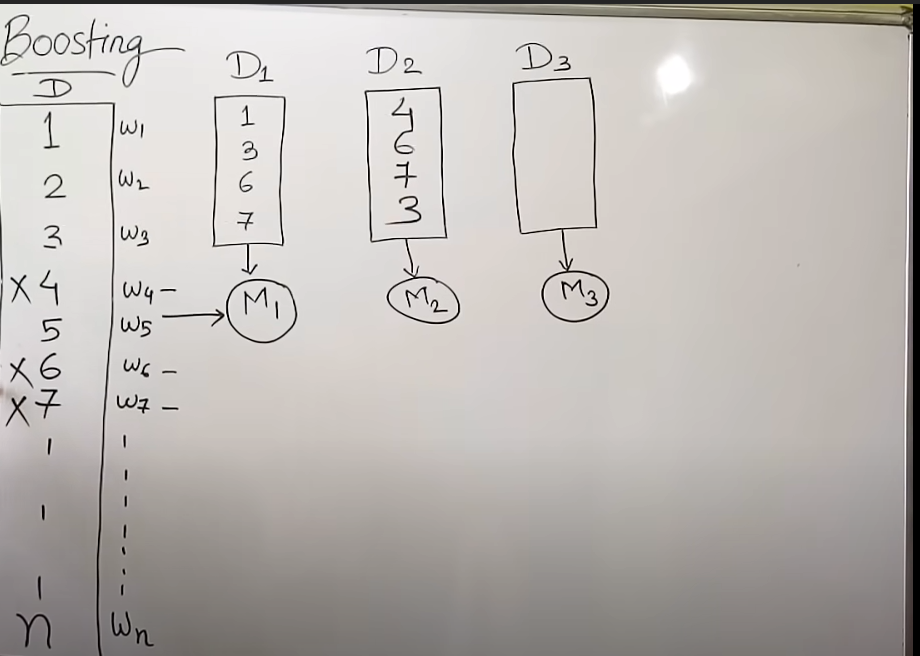 Boosting
D D1 D2 D3
1 w1
2 w2
3 w3
X 4 w4 –
5 w5
X 6 w6 –
X 7 w7 –
n wn
1
3
6
7
M1
4
6
7
3
M2
M3